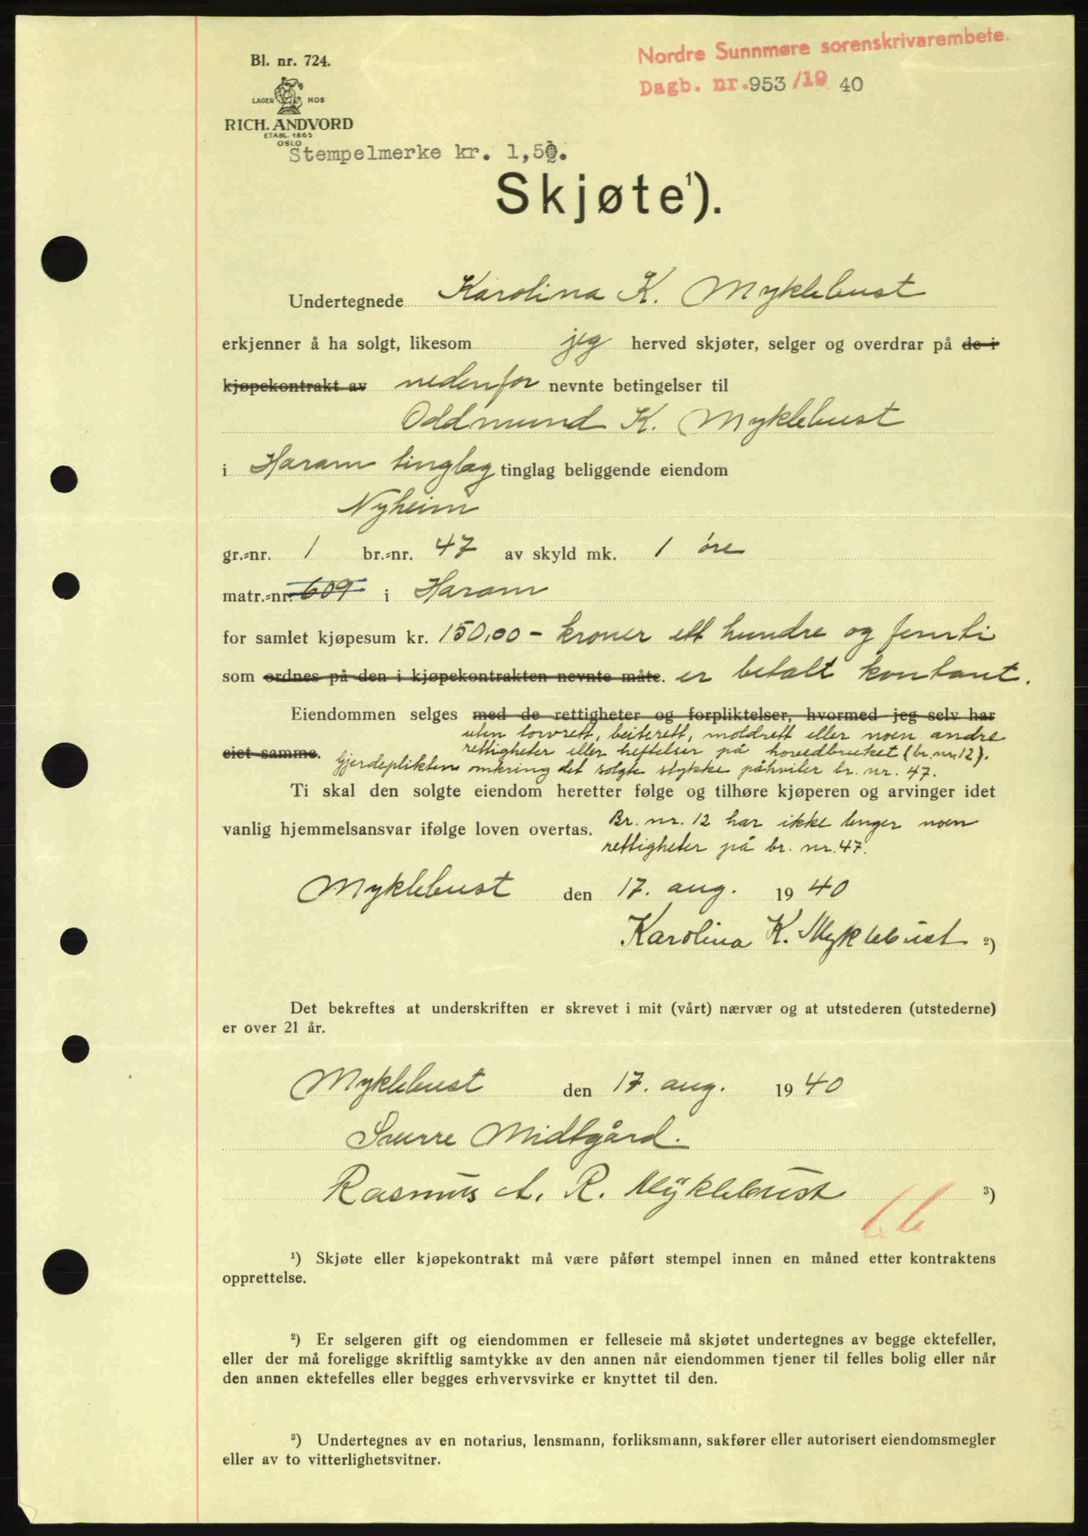 Bl. nr. 724.
LAGER HOS
RICH. ANDVORD
ETABL. 1865
OSLO
Nordre Sunnmøre sorenskrivarembete.
Dagb. nr. 953/19 40
Stempelmerke kr. 1,50.
Skjøte¹).
Undertegnede Karolina K. Myklebust
erkjenner å ha solgt, likesom jeg herved skjøter, selger og overdrar på de i
kjøpekontrakt av nedenfor nevnte betingelser til
Oddmund K. Myklebust
i Haram tinglag tinglag beliggende eiendom
Nyheim
gr.-nr. 1 br.-nr. 47 av skyld mk. 1 øre
matr.-nr. 609 i Haram
for samlet kjøpesum kr. 150,00 - kroner ett hundre og femti
som ordnes på den i kjøpekontrakten nevnte måte. er betalt kontant.
Eiendommen selges med de rettigheter og forpliktelser, hvormed jeg selv har
uten torvrett, beiterett, moldrett eller noen andre
eiet samme. rettigheter eller heftelser på hovedbruket (br. nr. 12).
Gjerdeplikten omkring det solgte stykke påhviler br. nr. 47.
Ti skal den solgte eiendom heretter følge og tilhøre kjøperen og arvinger idet
vanlig hjemmelsansvar ifølge loven overtas. Br. nr. 12 har ikke lenger noen
rettigheter på br. nr. 47.
Myklebust den 17. aug. 1940
Karolina K. Myklebust ²)
Det bekreftes at underskriften er skrevet i mit (vårt) nærvær og at utstederen (utstederne)
er over 21 år.
Myklebust den 17. aug. 1940
Sverre Midtgård.
Rasmus A. R. Myklebust ³)
¹) Skjøte eller kjøpekontrakt må være påført stempel innen en måned etter kontraktens
opprettelse.
²) Er selgeren gift og eiendommen er felleseie må skjøtet undertegnes av begge ektefeller,
eller der må foreligge skriftlig samtykke av den annen når eiendommen tjener til felles bolig eller når
den annen ektefelles eller begges erhvervsvirke er knyttet til den.
³) Undertegnes av en notarius, lensmann, forliksmann, sakfører eller autorisert eiendomsmegler
eller av to vitterlighetsvitner.